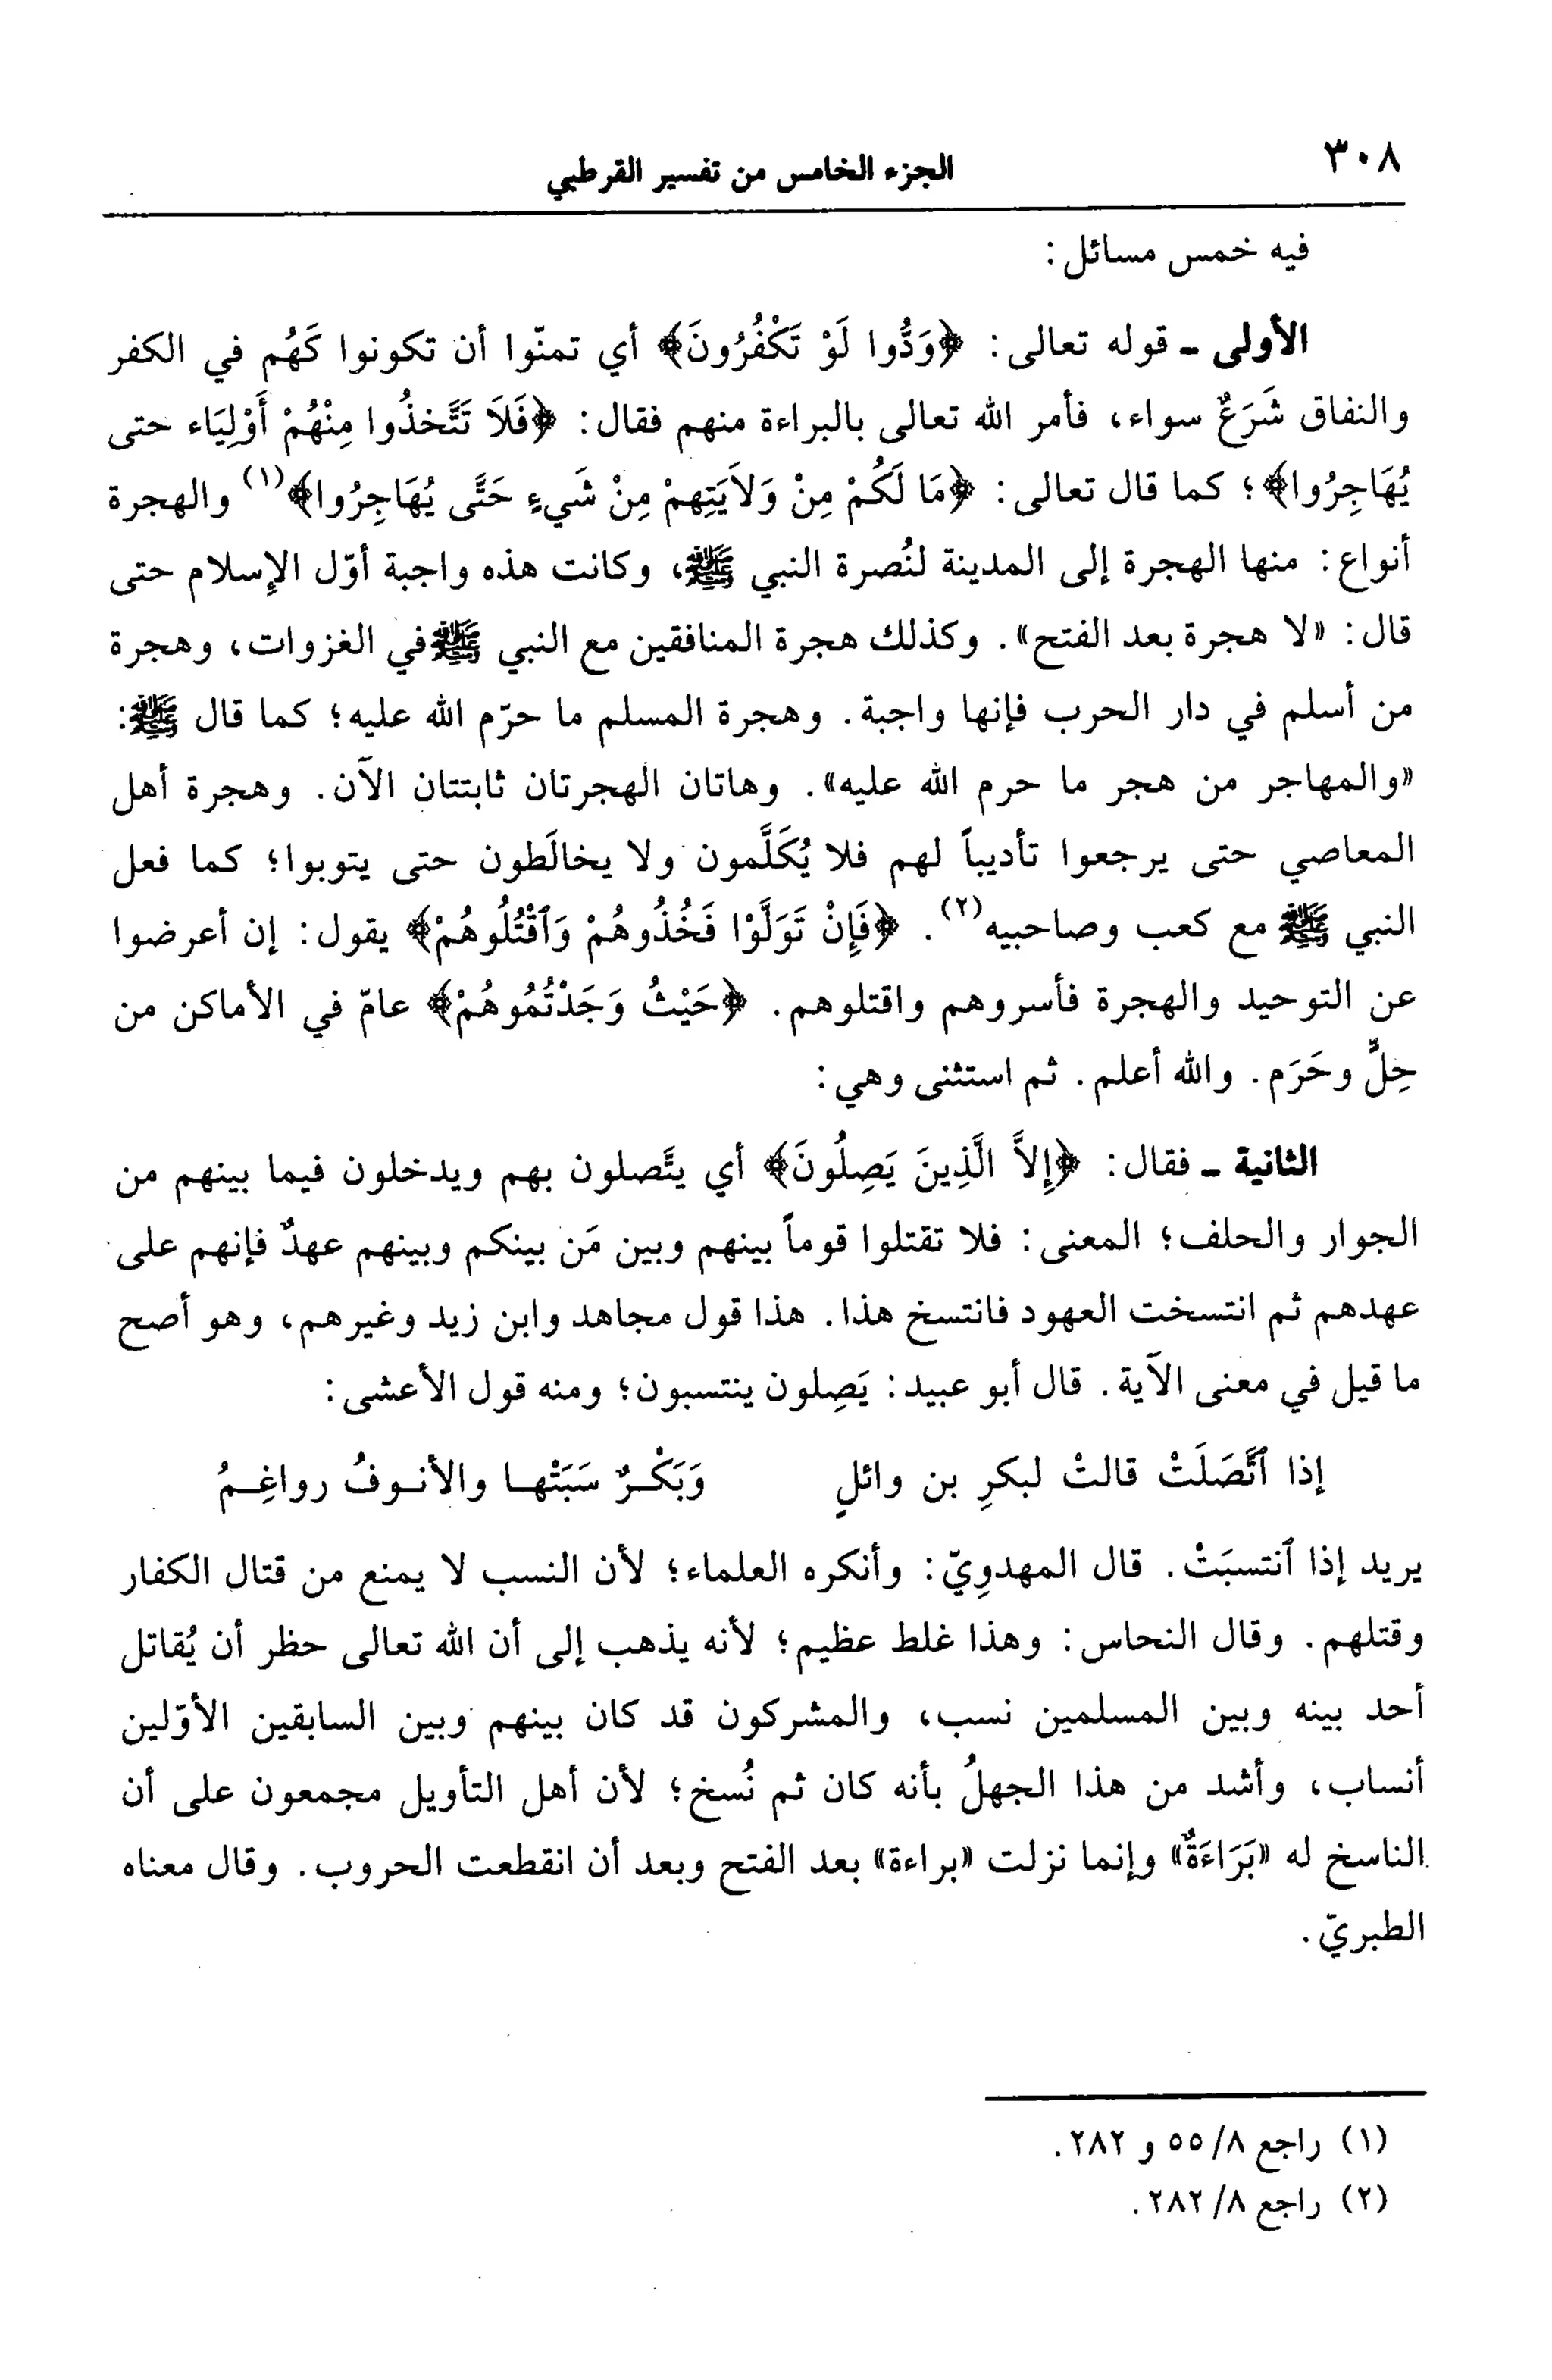 ٣٠٨
الجزء الخامس من تفسير القرطبي
فيه خمس مسائل :
الأولى ـ قوله تعالى : ﴿وَدُّوا لَوْ تَكْفُرُونَ﴾ أي تمنّوا أن تكونوا كَهُم في الكفر
والنفاق شَرَعٌ سواء، فأمر الله تعالى بالبراءة منهم فقال : ﴿فَلاَ تَتَّخذُوا مِنْهُمْ أَوْلِيَاء حتى
يُهَاجِرُوا﴾؛ كما قال تعالى : ﴿مَا لَكُمْ مِنْ وَلاَيَتِهِمْ مِنْ شَيءٍ حَتَّى يُهَاجِرُوا﴾(١) والهجرة
أنواع : منها الهجرة إلى المدينة لنُصرة النبي ﷺ، وكانت هذه واجبة أوّل الإسلام حتى
قال : «لا هجرة بعد الفتح». وكذلك هجرة المنافقين مع النبي ﷺفي الغزوات، وهجرة
من أسلم في دار الحرب فإنها واجبة. وهجرة المسلم ما حرّم الله عليه؛ كما قال ﷺ:
«والمهاجر من هجر ما حرم الله عليه». وهاتان الهجرتان ثابتتان الآن. وهجرة أهل
المعاصي حتى يرجعوا تأديباً لهم فلا يُكَلَّمون ولا يخالَطون حتى يتوبوا؛ كما فعل
النبي ﷺ مع كعب وصاحبيه(٢). ﴿فَإِنْ تَوَلَّوْا فَخُذُوهُمْ وَٱقْتُلُوهُمْ﴾ يقول : إن أعرضوا
عن التوحيد والهجرة فأسروهم واقتلوهم. ﴿حَيْثُ وَجَدْتُمُوهُمْ﴾ عامّ في الأماكن من
حِلٍّ وحَرَم. والله أعلم. ثم استثنى وهي :
الثانية ـ فقال : ﴿إِلاَّ الَّذِينَ يَصِلُونَ﴾ أي يتَّصلون بهم ويدخلون فيما بينهم من
الجوار والحلف؛ المعنى : فلا تقتلوا قوماً بينهم وبين مَن بينكم وبينهم عهدٌ فإنهم على
عهدهم ثم انتسخت العهود فانتسخ هذا. هذا قول مجاهد وابن زيد وغيرهم، وهو أصح
ما قيل في معنى الآية. قال أبو عبيد : يَصِلون ينتسبون؛ ومنه قول الأعشى :
إذا ٱتَّصَلَتْ قالتْ لبكرِ بن وائلٍ وَبَكْـرٌ سَبَتْهـا والأنـوفُ رواغِـمُ
يريد إذا ٱنتسبَتْ. قال المهدوِيّ : وأنكره العلماء؛ لأن النسب لا يمنع من قتال الكفار
وقتلهم. وقال النحاس : وهذا غلط عظيم؛ لأنه يذهب إلى أن الله تعالى حظر أن يُقاتل
أحد بينه وبين المسلمين نسب، والمشركون قد كان بينهم وبين السابقين الأوّلين
أنساب، وأشد من هذا الجهلُ بأنه كان ثم نُسخ؛ لأن أهل التأويل مجمعون على أن
الناسخ له «بَرَاءَةٌ» وإنما نزلت «براءة» بعد الفتح وبعد أن انقطعت الحروب. وقال معناه
الطبريّ.
(١) راجع ٨/ ٥٥ و ٢٨٢.
(٢) راجع ٨/ ٢٨٢.